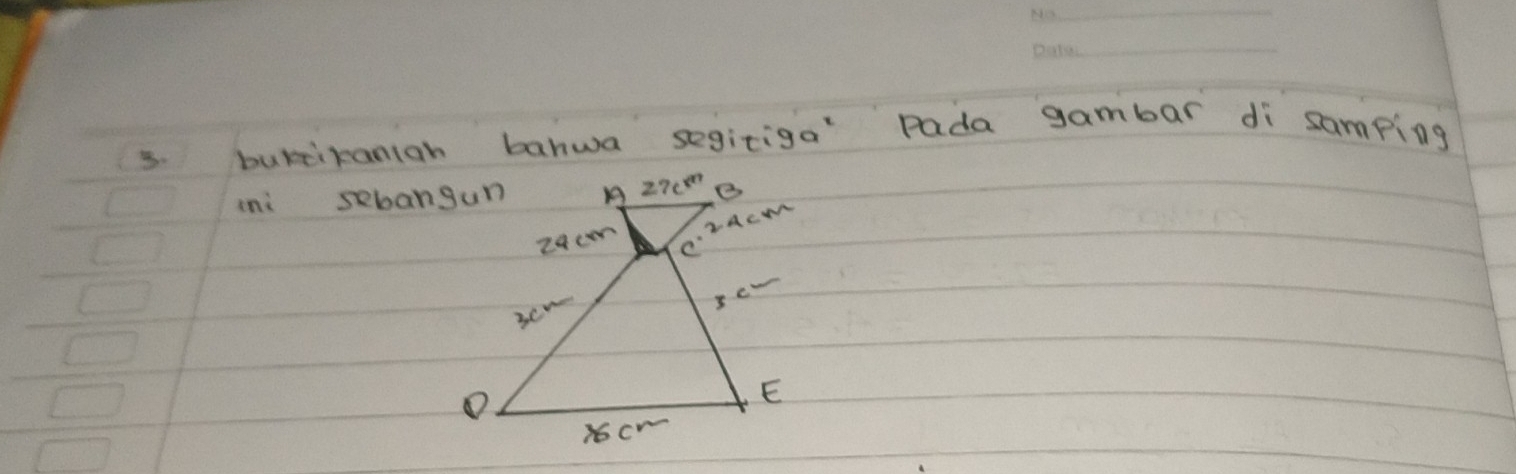 No.
Date:
3. buktikanlah bahwa segitiga² Pada gambar di samping
ini sebangun
A 27cm B
24cm
C. 24cm
3cm
3cm
D
E